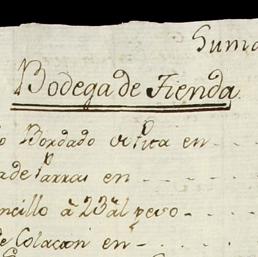 Suma
Bodega de Tienda
o Bordado en
a de Parras en
ncillo â 23 al peso
de Colacan en